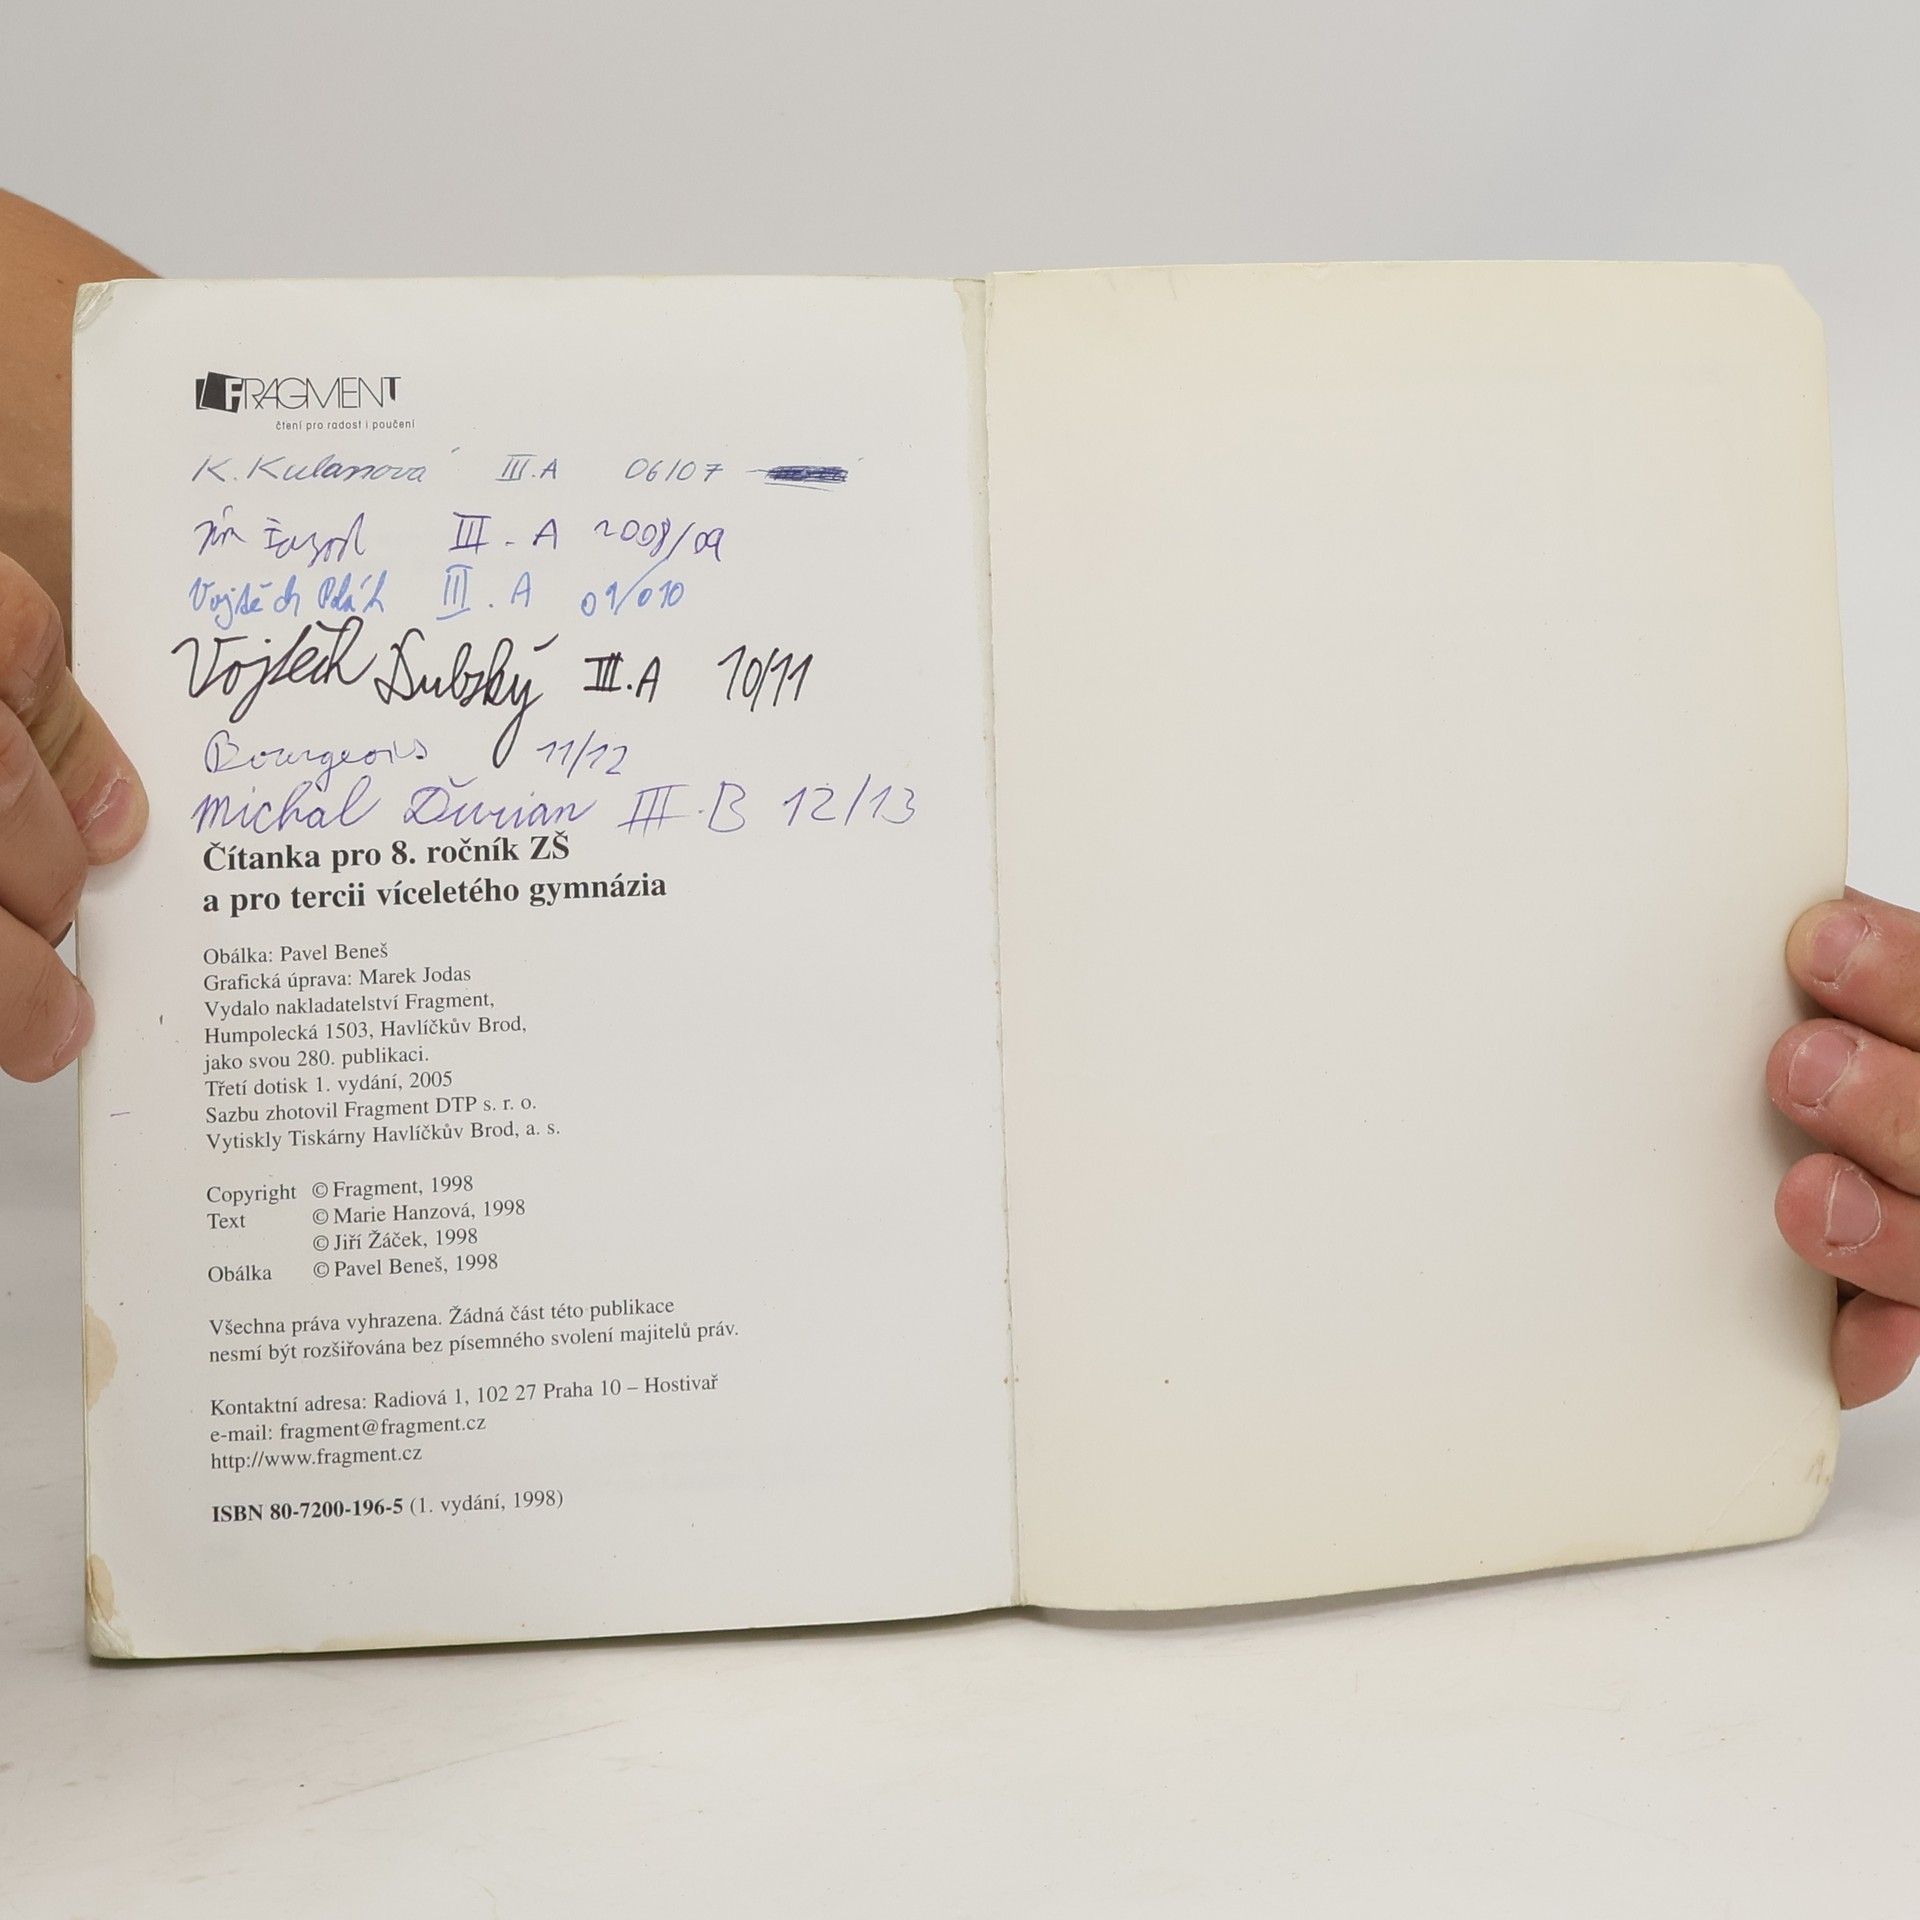 FRAGMENT
čtení pro radost i poučení
K. Kulanová III.A 06/07
III. A 2008/09
Vojtěch III. A 09/010
Vojtěch Dubský III.A 10/11
Bourgeois 11/12
Michal Ďurian III.B 12/13
Čítanka pro 8. ročník ZŠ
a pro tercii víceletého gymnázia
Obálka: Pavel Beneš
Grafická úprava: Marek Jodas
Vydalo nakladatelství Fragment,
Humpolecká 1503, Havlíčkův Brod,
jako svou 280. publikaci.
Třetí dotisk 1. vydání, 2005
Sazbu zhotovil Fragment DTP s. r. o.
Vytiskly Tiskárny Havlíčkův Brod, a. s.
Copyright © Fragment, 1998
Text © Marie Hanzová, 1998
© Jiří Žáček, 1998
Obálka © Pavel Beneš, 1998
Všechna práva vyhrazena. Žádná část této publikace
nesmí být rozšiřována bez písemného svolení majitelů práv.
Kontaktní adresa: Radiová 1, 102 27 Praha 10 – Hostivař
e-mail: fragment@fragment.cz
http://www.fragment.cz
ISBN 80-7200-196-5 (1. vydání, 1998)